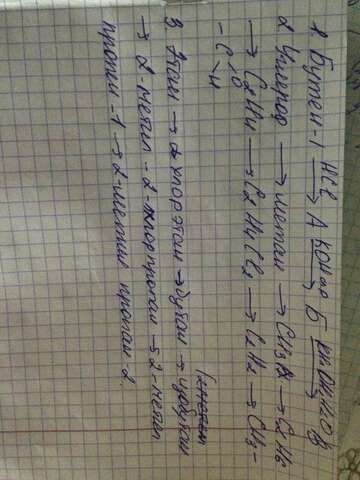 1. Бутен-1 HCl → А КОН сп → Б KMnO4, H2O → В
2. Углерод → метан → CH3Cl → C2H6
→ C2H4 → C2H4Cl2 → C2H2 → CH3-
-C=O
H
3. Этан → хлорэтан → бутан → изобутан
→ 2-метил-2-хлорпропан → 2-метил
пропен-1 → 2-метил пропан-2.